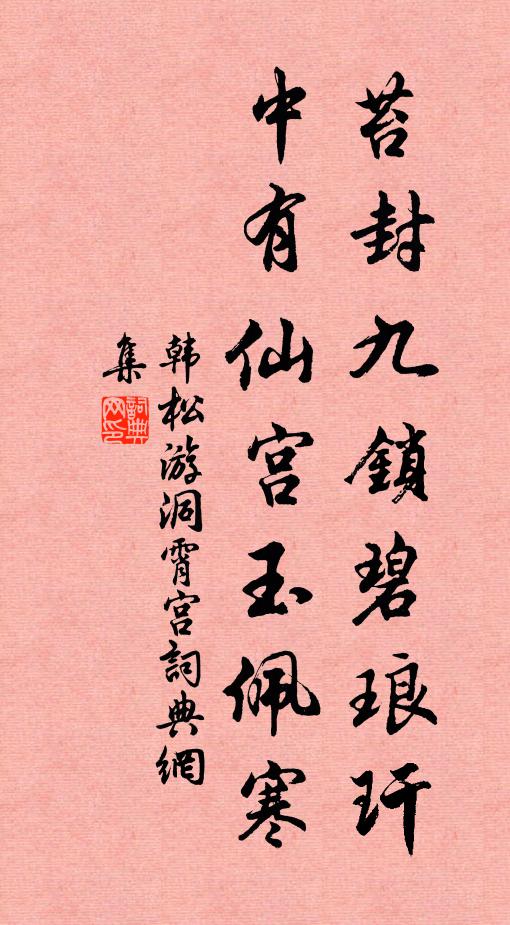 苔封九鎖碧琅玕
中有仙宫玉佩寒
韩松游洞霄宫詞典網
集
詞典网印